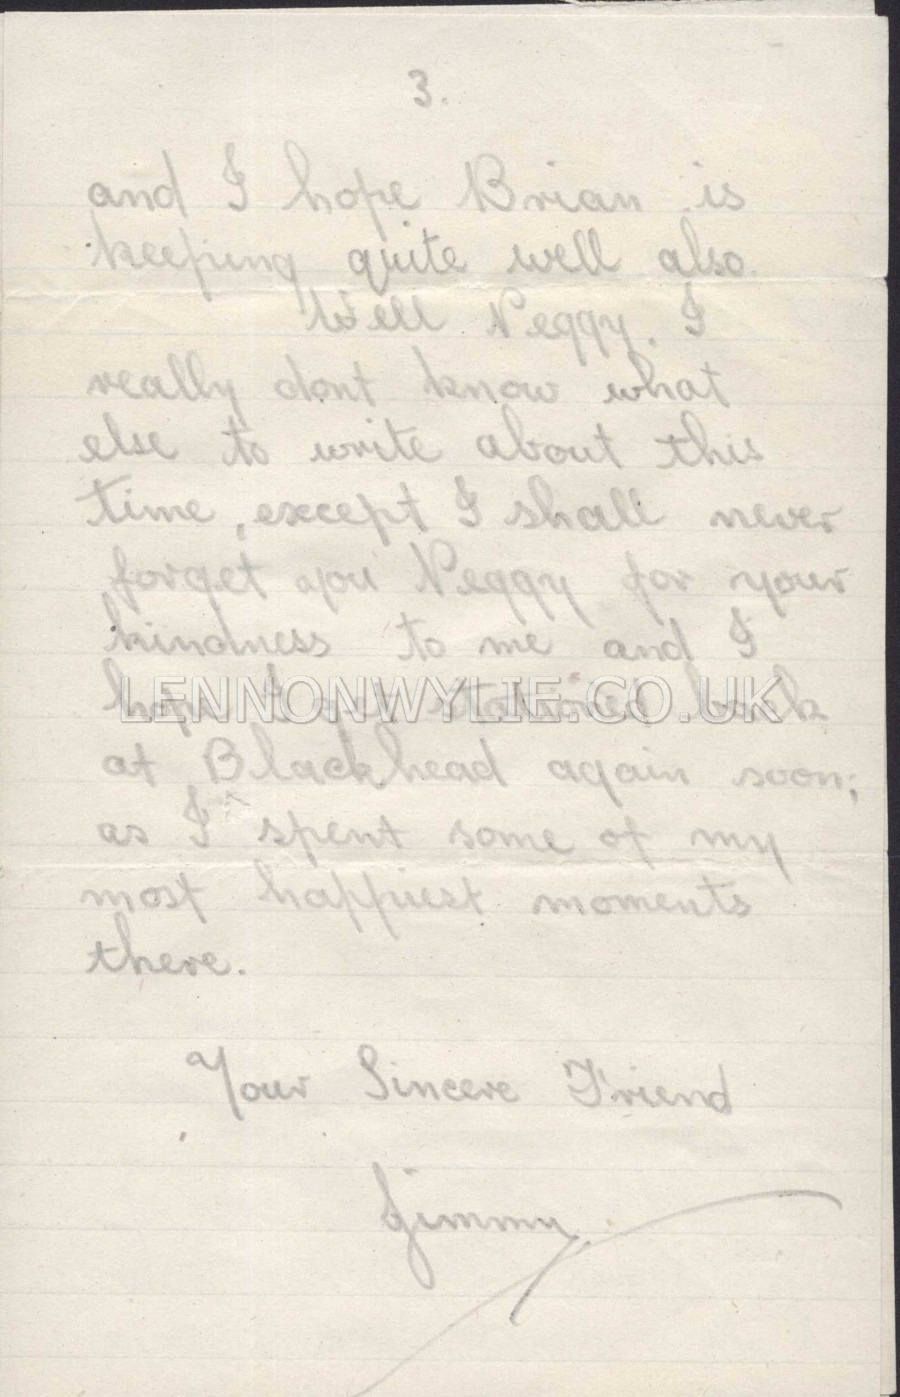 3.
and I hope Brian is
keeping quite well also.
Well Peggy. I
really dont know what
else to write about this
time, except I shall never
forget you Peggy for your
kindness to me and I
hope I get stationed back
LENNONWYLIE.CO.UK
at Blackhead again soon;
as I spent some of my
most happiest moments
there.
Your Sincere Friend
Jimmy